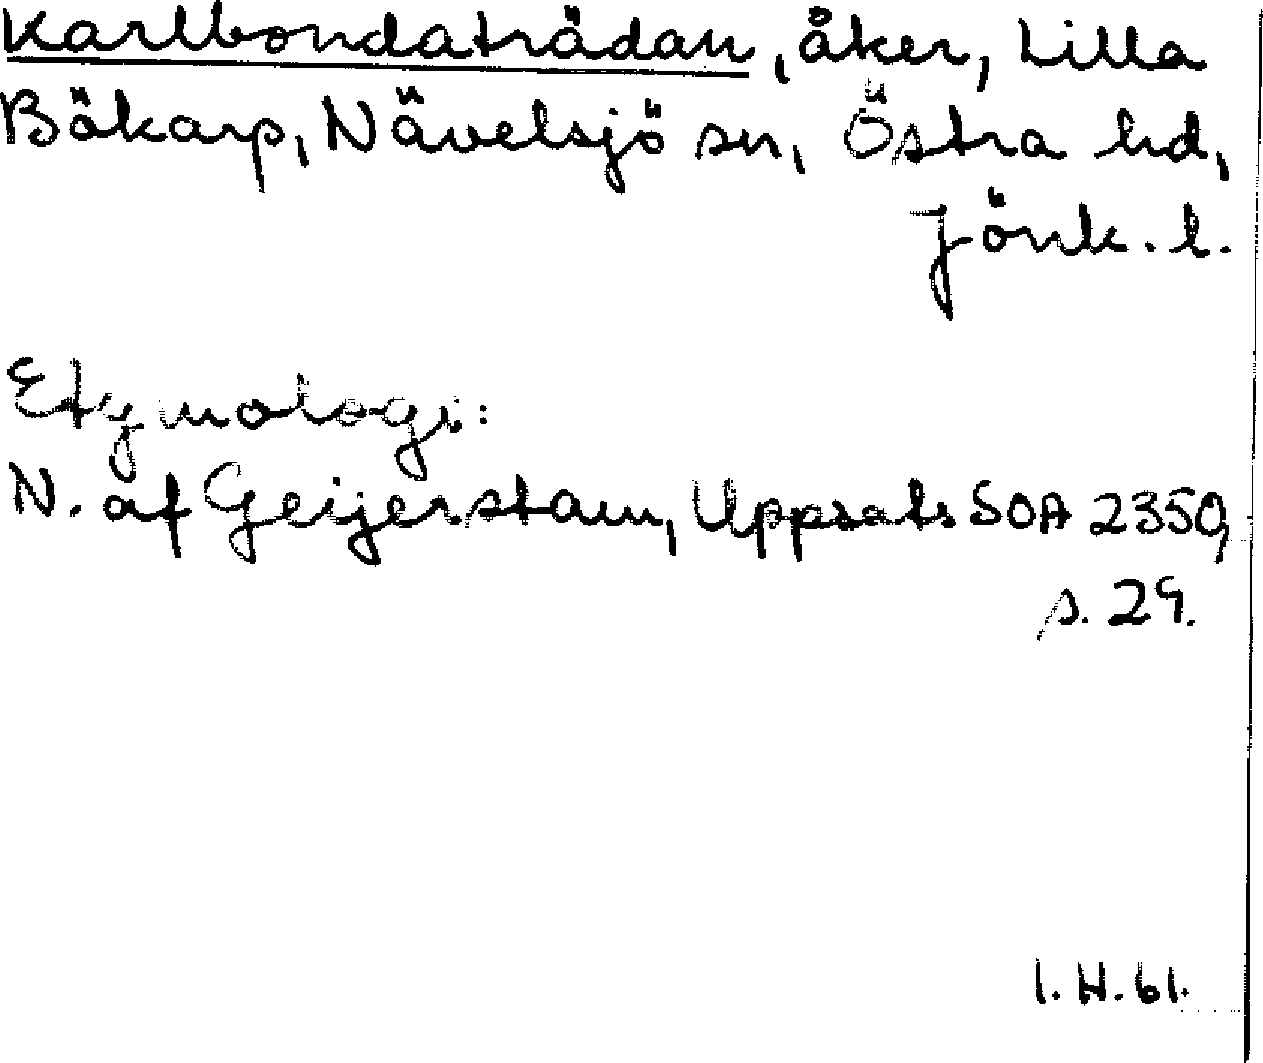 Karlbondaträdan, åker, Lilla
Bökarp, Nävelsjö sn, Östra hd,
Jönk. l.
Etymologi:
N. af Geijerstam, Uppsats SOA 2350,
s. 29.
I. H. 61.